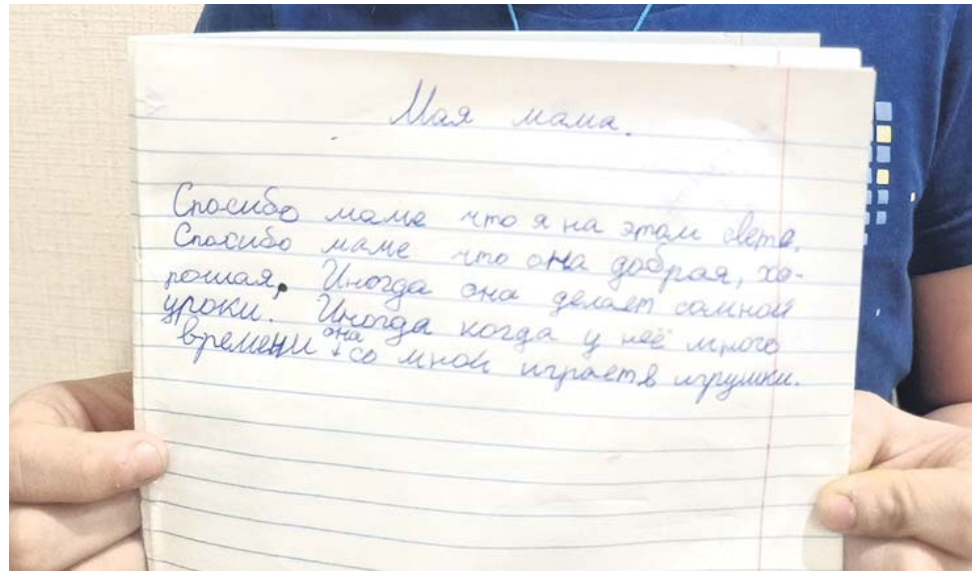 Мая мама.
Спосибо маме что я на этом свете.
Спосибо маме что она добрая, хо-
рошая, Иногда она делает самной
уроки. Иногда когда у неё много
времени она со мной играет в игрушки.